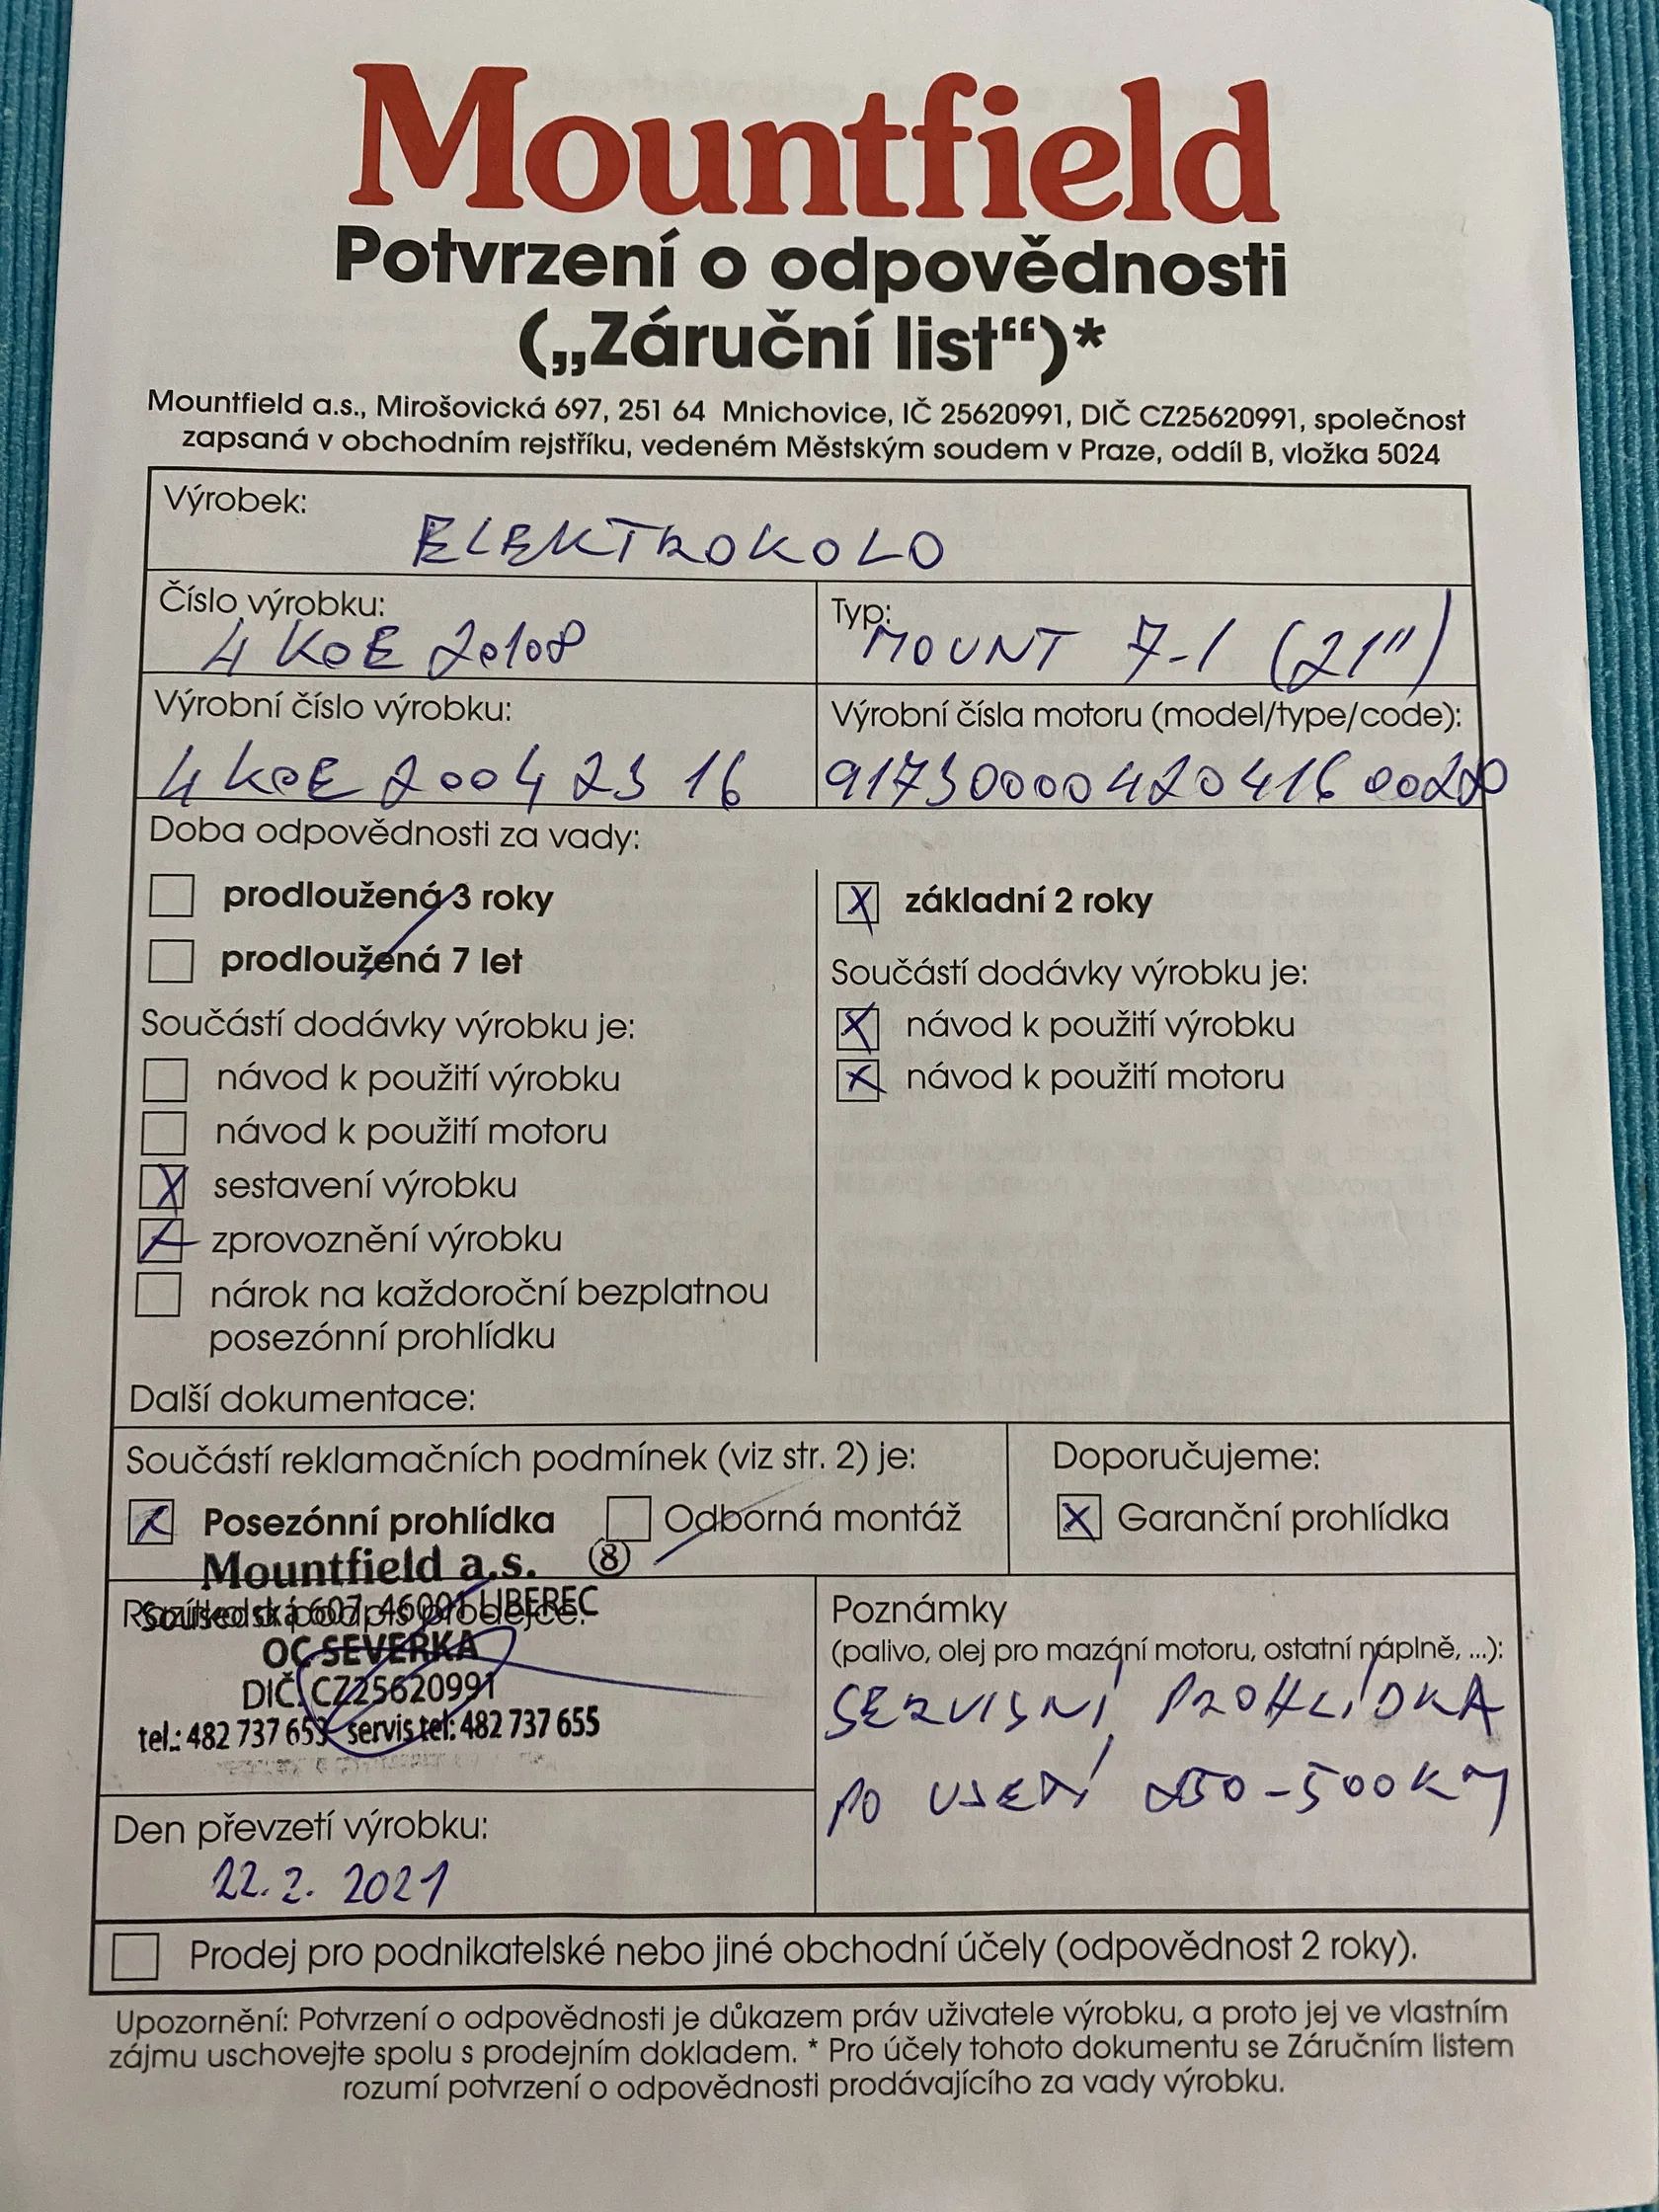 Mountfield
Potvrzení o odpovědnosti
(„Záruční list“)*
Mountfield a.s., Mirošovická 697, 251 64 Mnichovice, IČ 25620991, DIČ CZ25620991, společnost
zapsaná v obchodním rejstříku, vedeném Městským soudem v Praze, oddíl B, vložka 5024
Výrobek:
ELEKTROKOLO
Číslo výrobku:
4KOE20108
Typ:
MOUNT 7-1 (21")
Výrobní číslo výrobku:
4KOE 2004 23 16
Výrobní čísla motoru (model/type/code):
91730000420416
Doba odpovědnosti za vady:
prodloužená 3 roky
prodloužená 7 let
Součástí dodávky výrobku je:
návod k použití výrobku
návod k použití motoru
X sestavení výrobku
X zprovoznění výrobku
nárok na každoroční bezplatnou
posezónní prohlídku
X základní 2 roky
Součástí dodávky výrobku je:
X návod k použití výrobku
X návod k použití motoru
Další dokumentace:
Součástí reklamačních podmínek (viz str. 2) je:
X Posezónní prohlídka Odborná montáž
Doporučujeme:
X Garanční prohlídka
Mountfield a.s. 8
Razítko a podpis prodejce:
Sousedská 607, 46001 LIBEREC
OC SEVERKA
DIČ: CZ25620991
tel.: 482 737 653 servis tel: 482 737 655
Poznámky
(palivo, olej pro mazání motoru, ostatní náplně, ...):
SERVISNÍ PROHLÍDKA
PO UJETÍ 250-500KM
Den převzetí výrobku:
22. 2. 2021
Prodej pro podnikatelské nebo jiné obchodní účely (odpovědnost 2 roky).
Upozornění: Potvrzení o odpovědnosti je důkazem práv uživatele výrobku, a proto jej ve vlastním
zájmu uschovejte spolu s prodejním dokladem. * Pro účely tohoto dokumentu se Záručním listem
rozumí potvrzení o odpovědnosti prodávajícího za vady výrobku.